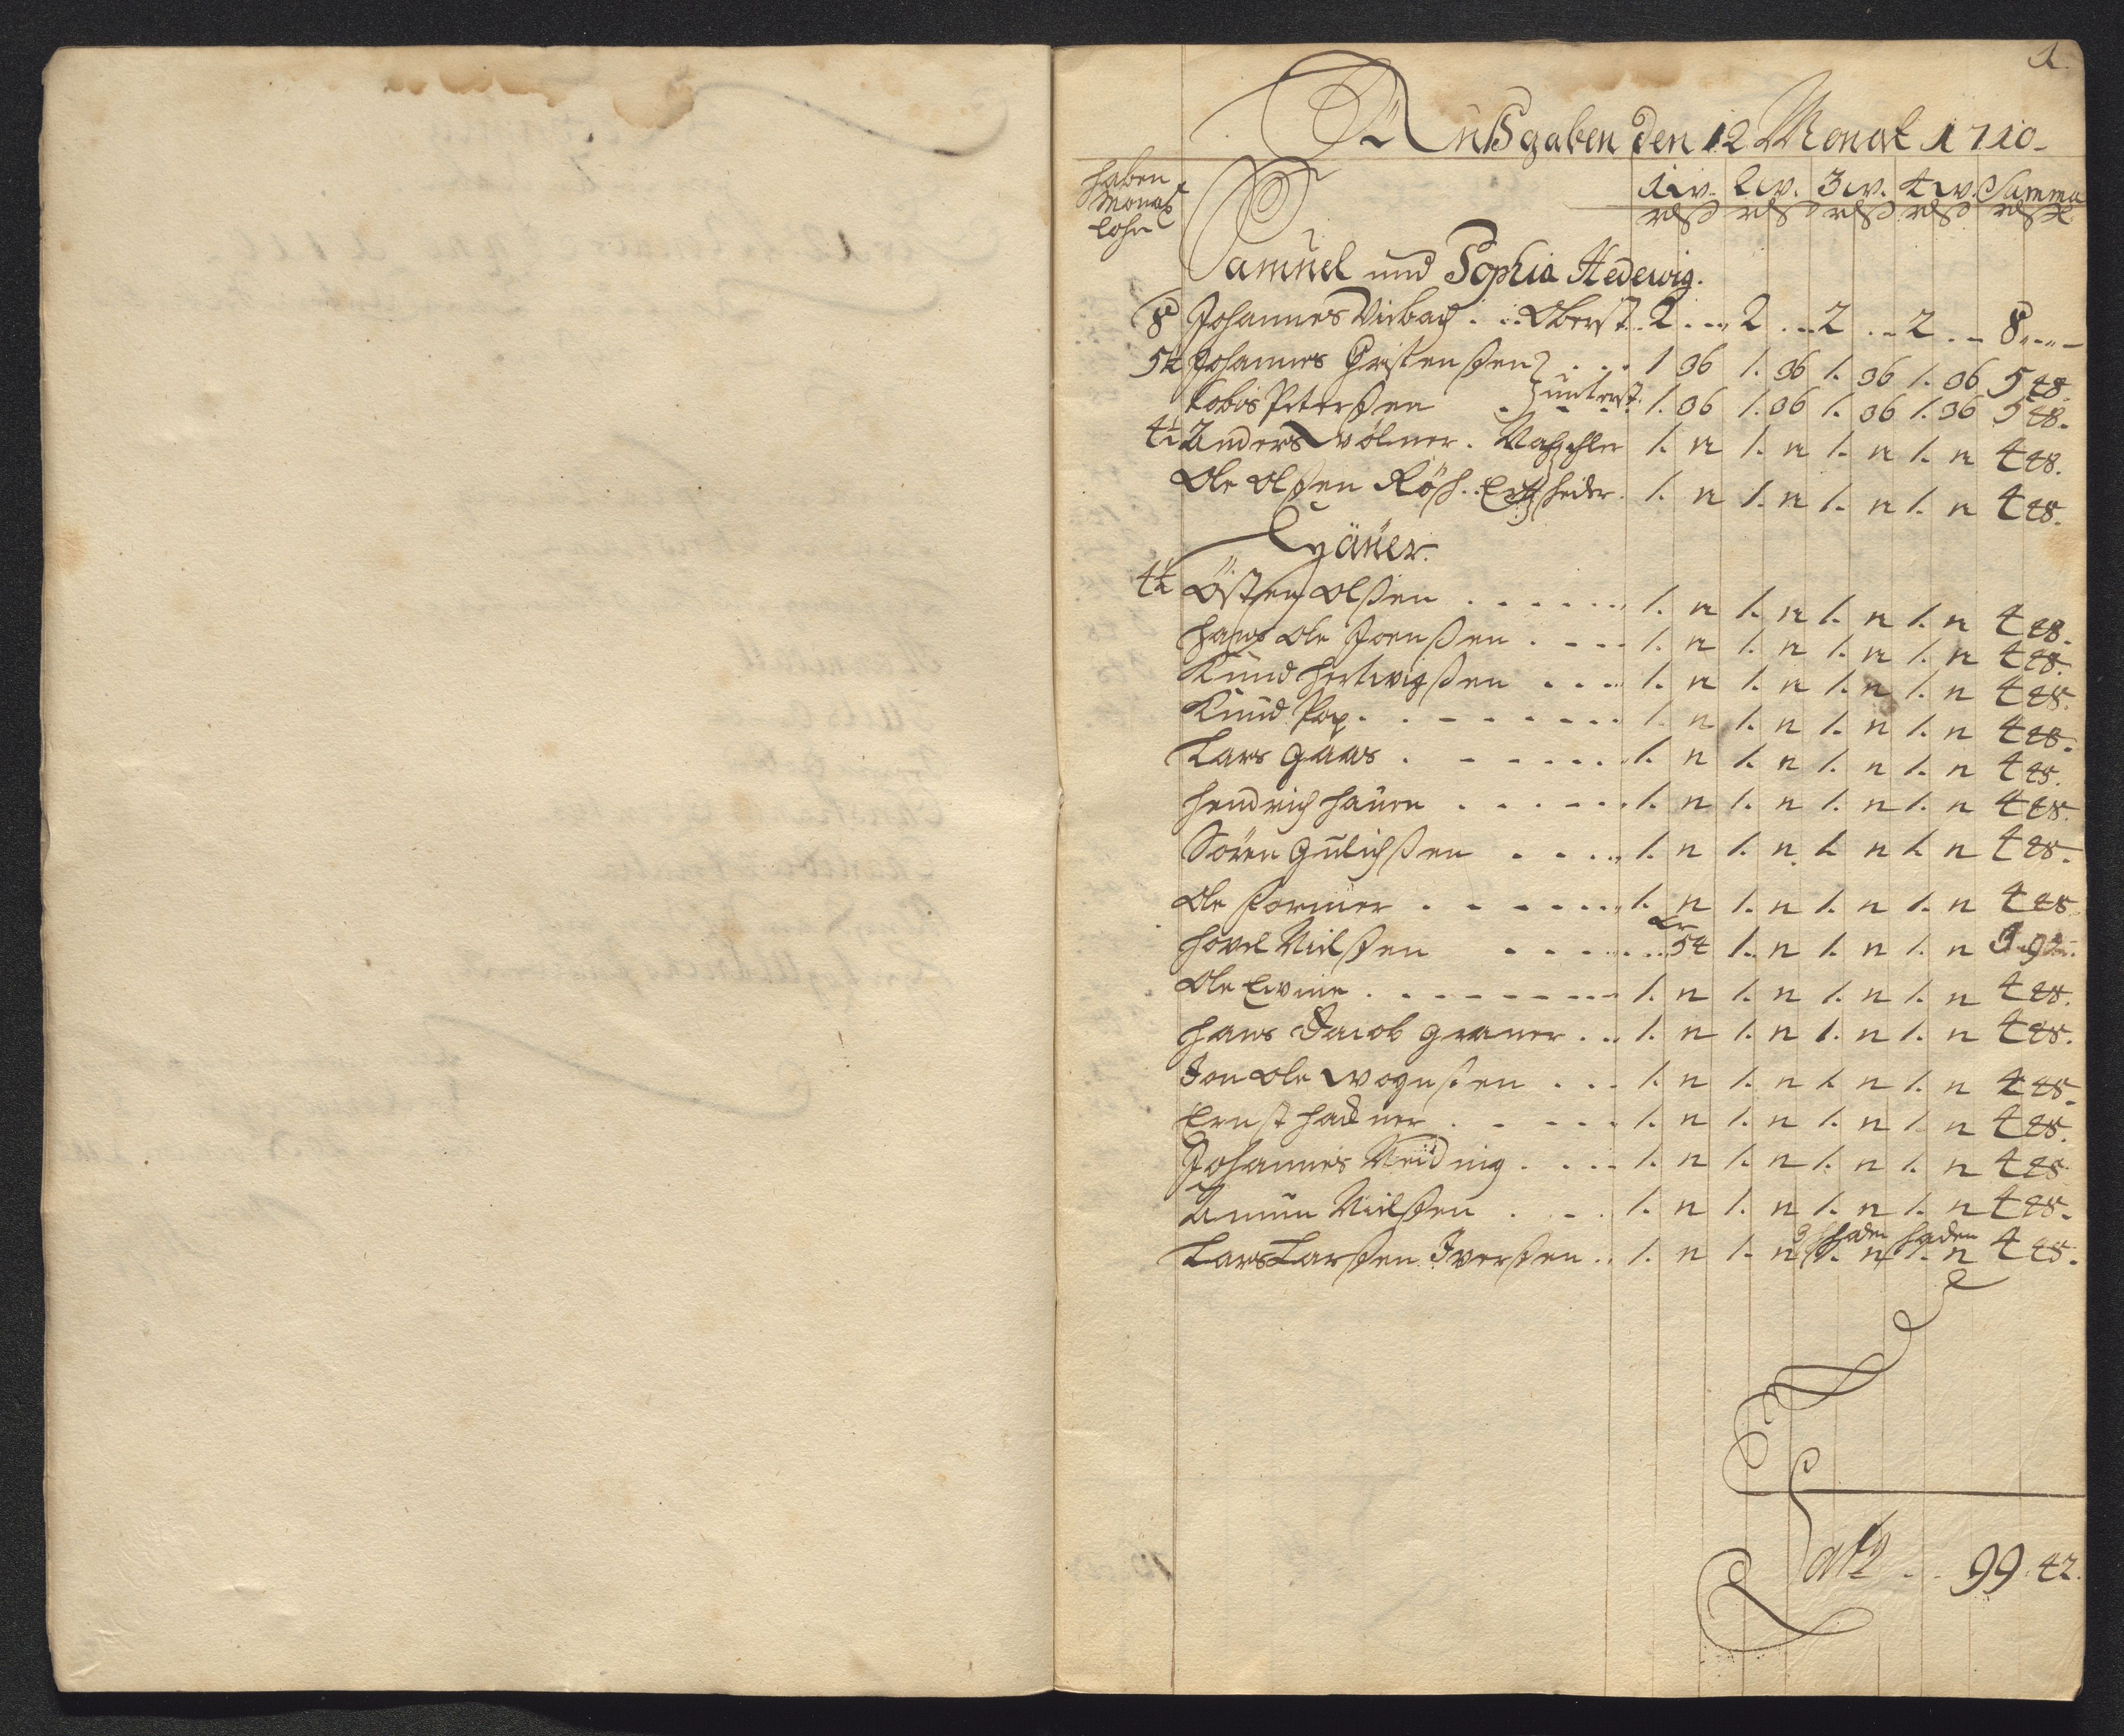 1.
Außgaben den 12 Monat 1710
haben Monat lohn
1 w. 2 w. 3 w. 4 w. Summa
rß rß rß rß rß
Samuel und Sophia Hedewig.
8 Johannes Visbach . . . Oberst. 2 . . . 2 . . . 2 . . . 2 . . . 8 . . . -
5½ Johannes Christensen . . . 1 36 1. 36 1. 36 1. 36 5 48.
Tobias Petersßen . . unterst. 1. 36 1. 36 1. 36 1. 36 5 48.
4½ Anders Völmer . 1. 12 1. 12 1. 12 1. 12 4 48.
Ole Olßen Röh. . Ertzscheider . 1. 12 1. 12 1. 12 1. 12 4 48.
Häuer.
4½ Östen Olßen . . . . . . 1. 12 1. 12 1. 12 1. 12 4 48.
Hans Ole Joenßen . . . . 1. 12 1. 12 1. 12 1. 12 4 48.
Knud Hertwigßen . . . . 1. 12 1. 12 1. 12 1. 12 4 48.
Knud Pop . . . . . . . . 1. 12 1. 12 1. 12 1. 12 4 48.
Lars Gaas . . . . . . . 1. 12 1. 12 1. 12 1. 12 4 48.
Hendrich Hauen . . . . . . 1. 12 1. 12 1. 12 1. 12 4 48.
Sören Gulichßen . . . . 1. 12 1. 12 1. 12 1. 12 4 48.
Ole Former . . . . . . 1. 12 1. 12 1. 12 1. 12 4 48
Hovel Nielßen . . . . . . 54 1. 12 1. 12 1. 12
Ole Ewine . . . . . . . . 1. 12 1. 12 1. 12 1. 12 4 48.
Hans Jacob Graner . . . 1. 12 1. 12 1. 12 1. 12 4 48.
Jon Ole Wognßen . . . 1. 12 1. 12 1. 12 1. 12 4 48.
Ernst Hackner . . . . . 1. 12 1. 12 1. 12 1. 12 4 48.
Johannes Neiding . . . . 1. 12 1. 12 1. 12 1. 12 4 48.
Amun Nielßen . . . 1. 12 1. 12 1. 12 1. 12 4 48.
Lars Larßen Iverßen . . 1. 12 1. 12 1. 12 1. 12 4 48.
Latz . . 99. 42.